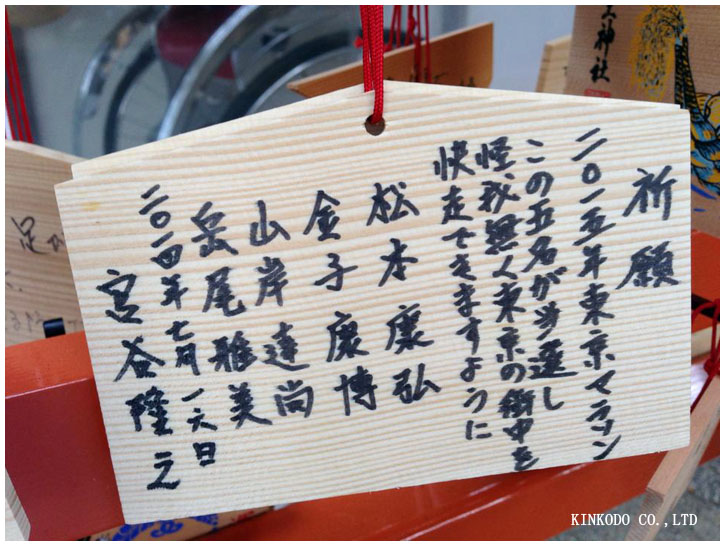 祈願
二〇一五年東京マラソン
この五名が当選し
怪我無く東京の街中を
快走できますように
松本康弘
金子康博
山岸達尚
岳尾雅美
二〇一四年七月一六日
宮谷隆之
神社
足が
KINKODO CO.,LTD